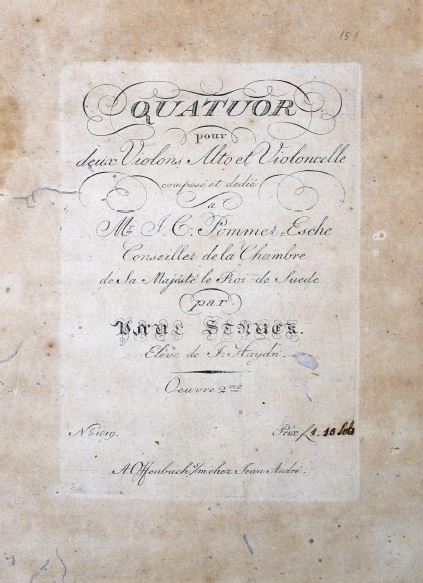 151
QUATUOR
pour
deux Violons Alto et Violoncelle
composé et dedié
a
Mr. J. C. Pommer-Esche
Conseiller de la Chambre
de Sa Majesté le Roi de Suede
par
PAUL STRUCK.
Elève de J. Haydn.
Oeuvre 2me
No. 1019. Prix f 1. 15 Sols
A Offenbach s/m chez Jean André.